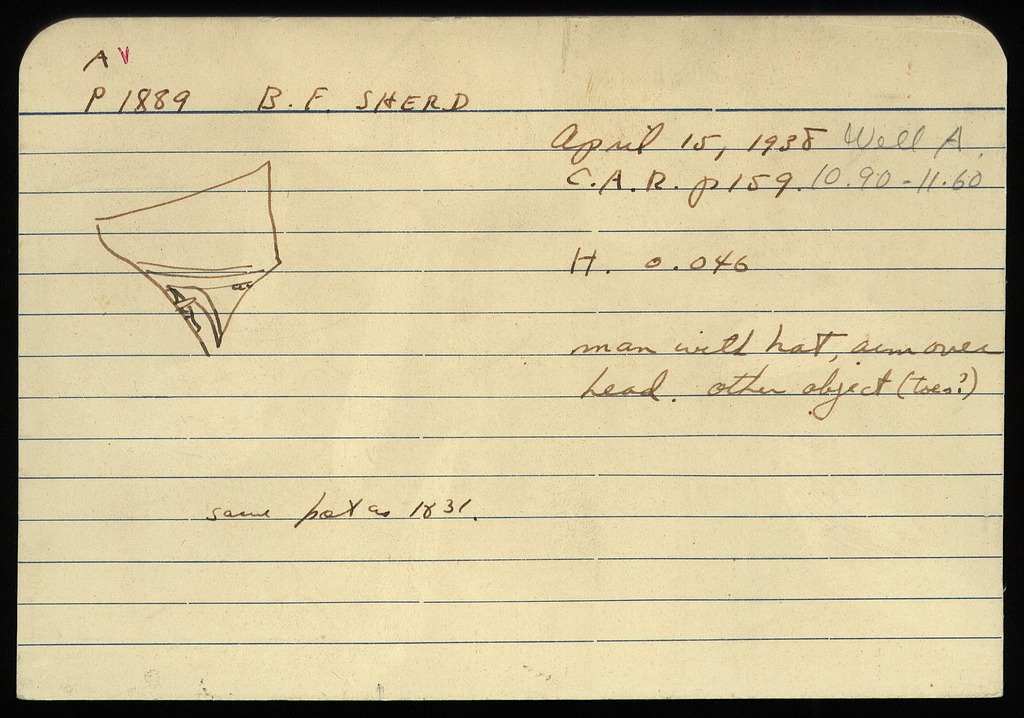 A V
P 1889 B.F. SHERD
April 15, 1938 Well A.
C.A.R. p 159. 10.90-11.60
H. 0.046
man with hat, arm over
head. other object (toes?)
same pot as 1831.